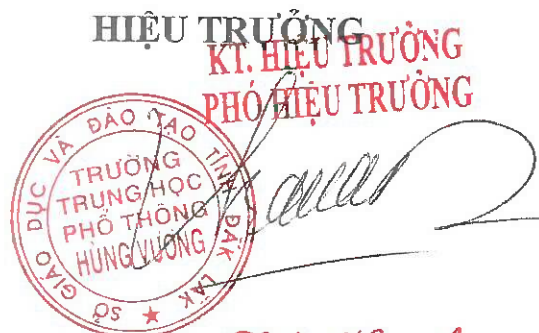 HIỆU TRƯỞNG
KT. HIỆU TRƯỞNG
PHÓ HIỆU TRƯỞNG
SỞ GIÁO DỤC VÀ ĐÀO TẠO TỈNH ĐẮK LẮK
TRƯỜNG
TRUNG HỌC
PHỔ THÔNG
HÙNG VƯƠNG